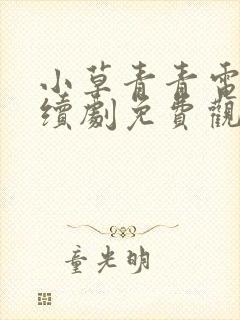 小草青青電
續劇免費觀
童光明